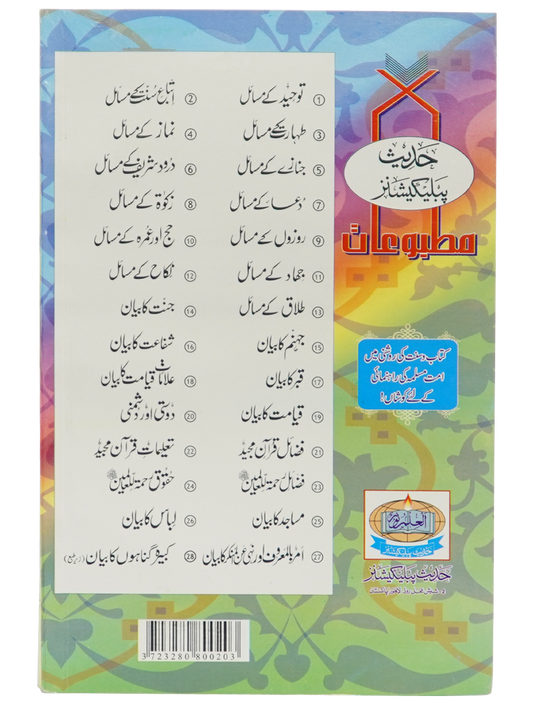 حدیث
پبلیکیشنز
مطبوعات
① توحید کے مسائل
② اتباعِ سنت کے مسائل
③ طہارت کے مسائل
④ نماز کے مسائل
⑤ جنازے کے مسائل
⑥ درود شریف کے مسائل
⑦ دعا کے مسائل
⑧ زکوٰۃ کے مسائل
⑨ روزوں کے مسائل
⑩ حج اور عمرہ کے مسائل
⑪ جہاد کے مسائل
⑫ نکاح کے مسائل
⑬ طلاق کے مسائل
⑭ جنت کا بیان
⑮ جہنم کا بیان
⑯ شفاعت کا بیان
⑰ قبر کا بیان
⑱ علاماتِ قیامت کا بیان
⑲ قیامت کا بیان
⑳ دوستی اور دشمنی
㉑ فضائل قرآن مجید
㉒ تعلیمات قرآن مجید
㉓ فضائل رحمۃ للعالمین ﷺ
㉔ حقوق رحمۃ للعالمین ﷺ
㉕ مساجد کا بیان
㉖ لباس کا بیان
㉗ امر بالمعروف اور نہی عن المنکر کا بیان
㉘ کبیرہ گناہوں کا بیان (زیر طبع)
کتاب و سنت کی روشنی میں
امت مسلمہ کی راہنمائی
کے لئے کوشاں!
العلم نور
حدیث پبلیکیشنز
حدیث پبلیکیشنز
3 723280 800203